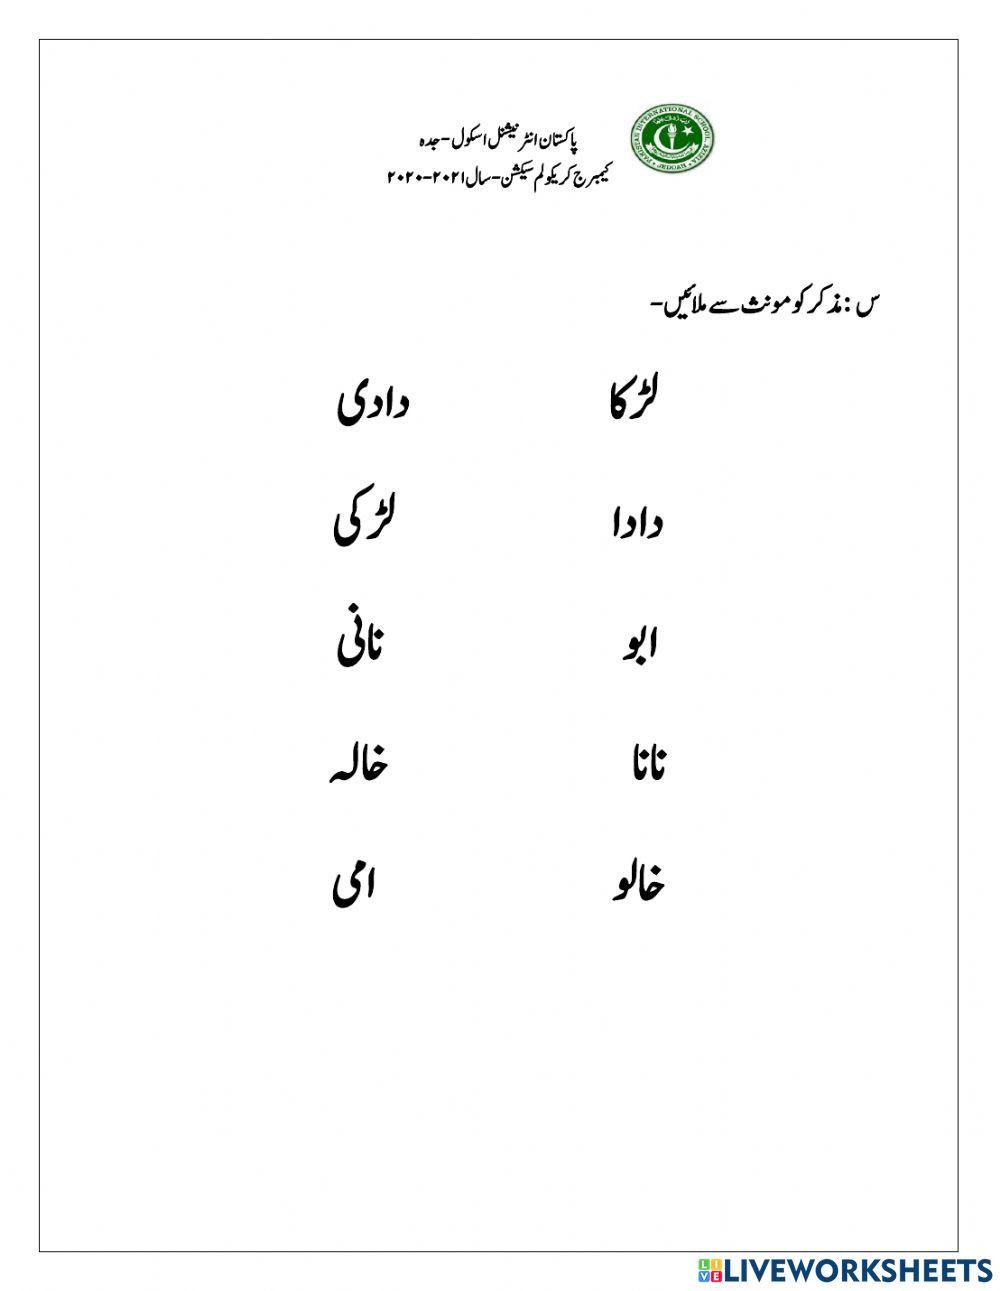 پاکستان انٹرنیشنل اسکول-جدہ
کیمبرج کریکولم سیکشن-سال ۲۰۲۱-۲۰۲۰
PAKISTAN INTERNATIONAL SCHOOL AZIZIA JEDDAH
س: مذکر کو مونث سے ملائیں-
لڑکا دادی
دادا لڑکی
ابو نانی
نانا خالہ
خالو امی
LIVEWORKSHEETS